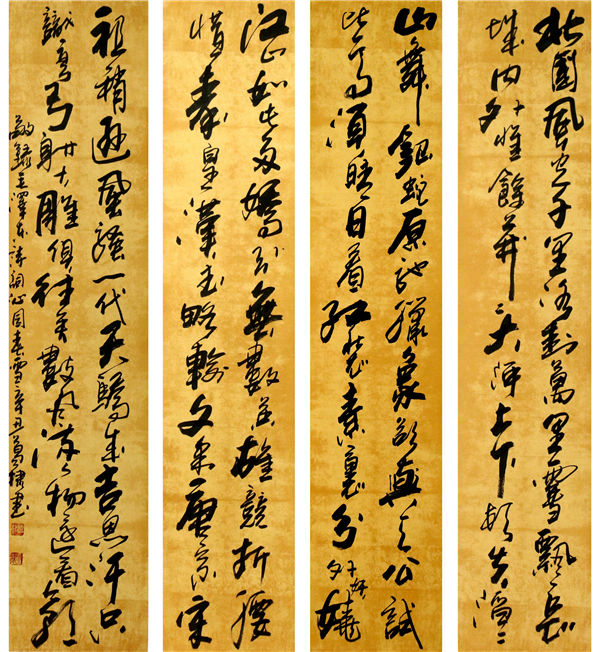 北國風光千里冰封萬里雪飄望長
城内外惟餘莽〻大河上下頓失滔〻
山舞銀蛇原馳臘象欲與天公試
比高須晴日看紅裝素裹分外妖嬈
江山如此多嬌引無數英雄競折腰
惜秦皇漢武略輸文采唐宗宋
祖稍遜風騷一代天驕成吉思汗只
識彎弓射大雕俱往矣數風流人物還看今朝
敬錄毛澤東詩詞沁園春雪辛丑書